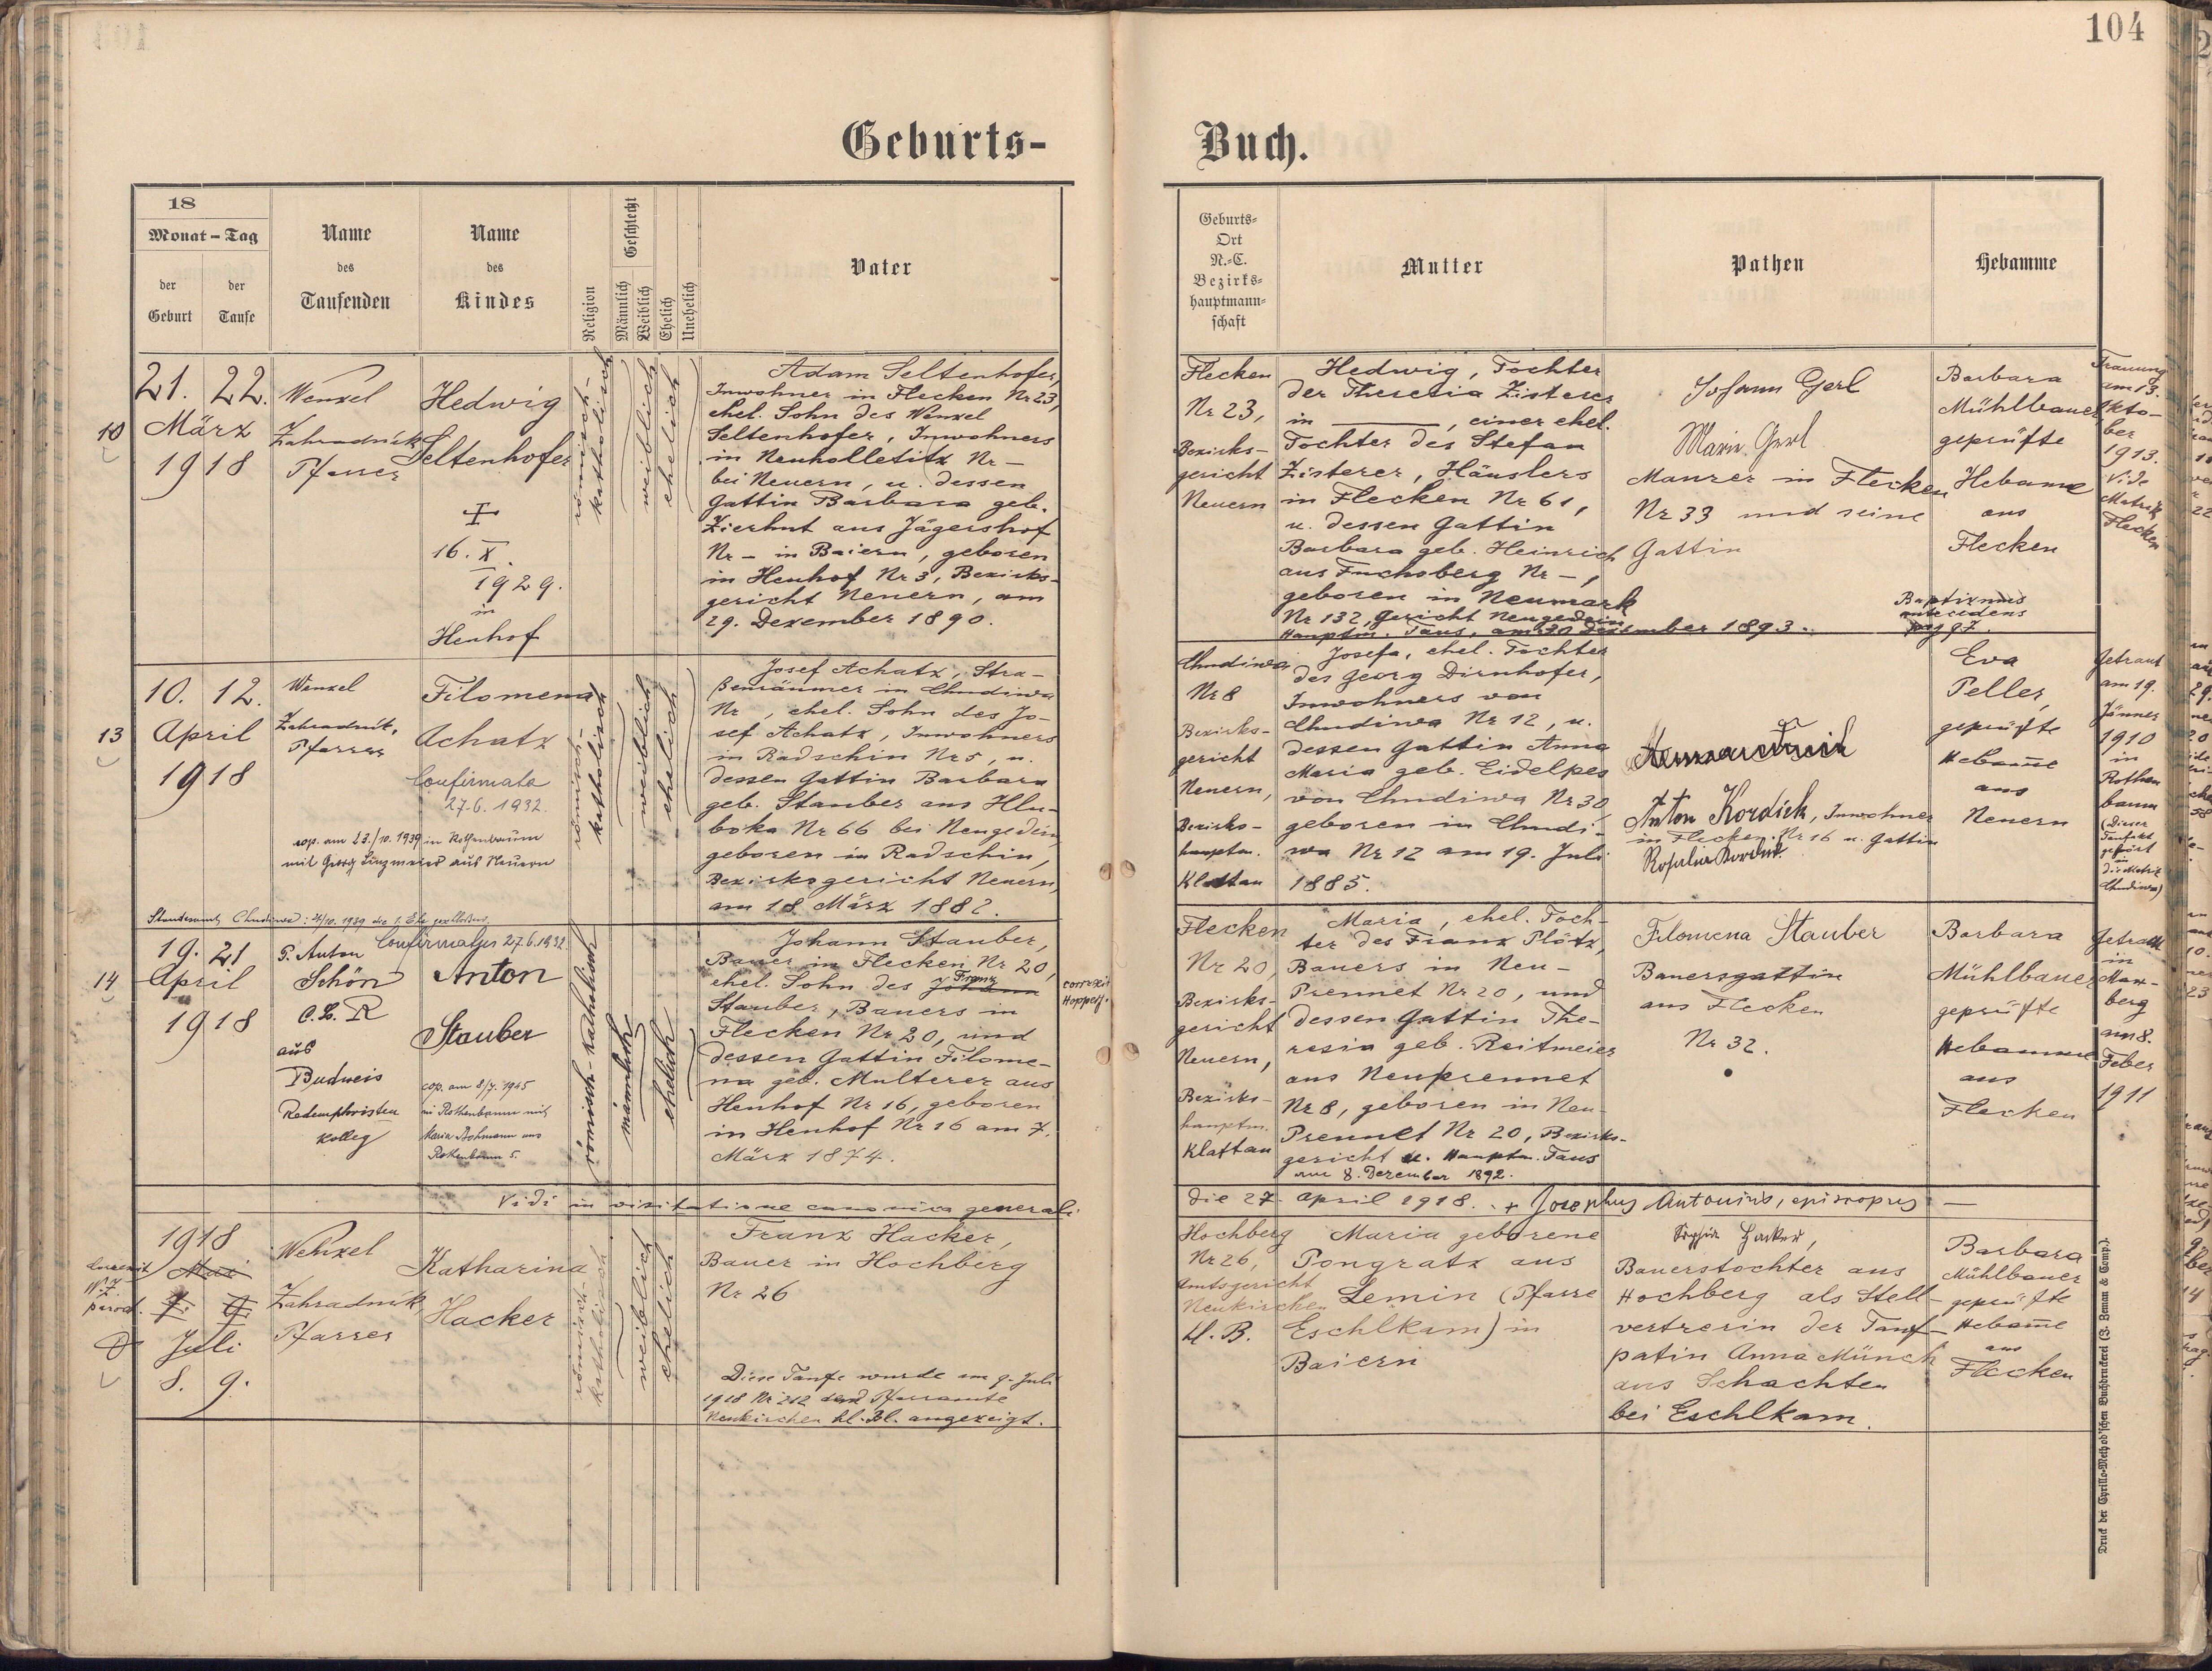 104
Geburts-
Buch.
18
Monat - Tag
der
Geburt
der
Taufe
Name
des
Taufenden
Name
des
Kindes
Religion
Geschlecht
Männlich
Weiblich
Ehelich
Unehelich
Vater
Geburts-
Ort
N.-C.
Bezirks-
hauptmann-
schaft
Mutter
Pathen
Hebamme
10
21. 22.
März
1918
Wenzel
Zahradnik
Pfarrer
Hedwig
Seltenhofer
+
16. X.
1929.
in
Henhof
römisch-
katholisch
weiblich
ehelich
Adam Seltenhofer,
Inwohner in Flecken Nr 23,
ehel. Sohn des Wenzel
Seltenhofer, Inwohners
in Neuholletitz Nr –
bei Neuern, u. dessen
Gattin Barbara geb.
Zierhut aus Jägershof
Nr – in Baiern, geboren
in Henhof Nr 3, Bezirks-
gericht Neuern, am
29. Dezember 1890.
Flecken
Nr 23,
Bezirks-
gericht
Neuern
Hedwig, Tochter
der Theresia Zisterer
in ———, einer ehel.
Tochter des Stefan
Zisterer, Häuslers
in Flecken Nr 61,
u. dessen Gattin
Barbara geb. Heinrich
aus Fuchsberg Nr –,
geboren in Neumark
Nr 132, Gericht Neugedein
Hauptm. Taus, am 20 Dezember 1893.
Johann Gerl
Marie Gerl
Maurer in Flecken
Nr 33 und seine
Gattin
Barbara
Mühlbauer
geprüfte
Hebame
aus
Flecken
Baptismus
antecedens
pag 97.
Trauung
am 13.
Okto-
ber
1913.
Vide
Matrik
Flecken
13
10. 12.
April
1918
Wenzel
Zahradnik,
Pfarrer
Filomena
Achatz
Confirmata
27.6.1932.
cop. am 23./10. 1939 in Rothenbaum
mit Georg Linzmeier aus Neuern
Standesamt Chudiwa: 21/10. 1939 die 1. Ehe geschlossen.
römisch-
katholisch
weiblich
ehelich
Josef Achatz, Stra-
ßenräumer in Chudiwa
Nr , ehel. Sohn des Jo-
sef Achatz, Inwohners
in Radschin Nr 5, u.
dessen Gattin Barbara
geb. Stauber aus Hlu-
boka Nr 66 bei Neugedein,
geboren in Radschin,
Bezirksgericht Neuern,
am 18 März 1882.
Chudiwa
Nr 8
Bezirks-
gericht
Neuern,
Bezirks-
hauptm.
Klattau
Josefa, ehel. Tochter
des Georg Dirnhofer,
Inwohners von
Chudiwa Nr 12, u.
dessen Gattin Anna
Maria geb. Eidelpes
von Chudiwa Nr 30,
geboren in Chudi-
wa Nr 12 am 19. Juli
1885.
Anton Kordick, Inwohner
in Flecken Nr 16 u. Gattin
Rosalia Kordick
Eva
Peller,
geprüfte
Hebame
aus
Neuern
Getraut
am 19.
Jänner
1910
in
Rothen
baum
(Dieser
Taufakt
gehört
in
die Matrik
Chudiwa)
14
19. 21
April
1918
P. Anton
Schön
C.Ss.R
aus
Budweis
Redemptoristen
Kolleg
Confirmatus 27.6.1932.
Anton
Stauber
cop. am 8/7. 1945
in Rothenbaum mit
Maria Aschmann aus
Rothenbaum 5.
römisch-katholisch
männlich
ehelich
Johann Stauber,
Bauer in Flecken Nr 20,
ehel. Sohn des Johann Franz
Stauber, Bauers in
Flecken Nr 20, und
dessen Gattin Filome-
na geb. Multerer aus
Henhof Nr 16, geboren
in Henhof Nr 16 am 7.
März 1874.
correxit
Hopperj.
Flecken
Nr 20,
Bezirks-
gericht
Neuern,
Bezirks-
hauptm.
Klattau
Maria, ehel. Toch-
ter des Franz Plötz,
Bauers in Neu-
Prennet Nr 20, und
dessen Gattin The-
resia geb. Reitmeier
aus Neuprennet
Nr 8, geboren in Neu-
Prennet Nr 20, Bezirks-
gericht u. Hauptm. Taus
am 8. Dezember 1892.
Filomena Stauber
Bauersgattin
aus Flecken
Nr 32.
Barbara
Mühlbauer
geprüfte
Hebamme
aus
Flecken
Getraut
in
Max-
berg
am 8.
Feber
1911
Vidi in visitatione canonica generali
die 27. april 1918. + Josephus Antonius, episcopus —
1918
Mai
7. 9.
Juli
8. 9.
Correxit
W. Z.
paroch.
Wenzel
Zahradnik
Pfarrer
Katharina
Hacker
römisch-
katholisch
weiblich
ehelich
Franz Hacker,
Bauer in Hochberg
Nr 26
Diese Taufe wurde am 9. Juli
1918 Nr 212 dem Pfarramte
Neukirchen hl. Bl. angezeigt.
Hochberg
Nr 26,
Amtsgericht
Neukirchen
hl. B.
Maria geborene
Pongratz aus
Lemin (Pfarre
Eschlkam) in
Baiern
Sophie Hacker,
Bauerstochter aus
Hochberg als Stell-
vertrerin der Tauf-
patin Anna Münch
aus Schachten
bei Eschlkam.
Barbara
Mühlbauer
geprüfte
Hebame
aus
Flecken
Druck der Cyrillo-Method'schen Buchdruckerei (J. Zeman & Comp.).